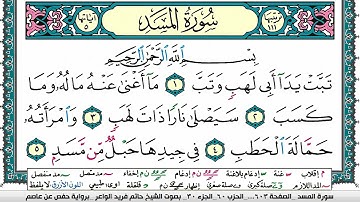 ترتيبها ١١١ سُورَةُ المَسَدِ آياتها ٥
بِسْمِ ٱللَّهِ ٱلرَّحْمَٰنِ ٱلرَّحِيمِ
تَبَّتْ يَدَآ أَبِي لَهَبٍ وَتَبَّ ١ مَآ أَغْنَىٰ عَنْهُ مَالُهُۥ وَمَا
كَسَبَ ٢ سَيَصْلَىٰ نَارًا ذَاتَ لَهَبٍ ٣ وَٱمْرَأَتُهُۥ
حَمَّالَةَ ٱلْحَطَبِ ٤ فِي جِيدِهَا حَبْلٌ مِّن مَّسَدٍۭ ٥
سورة المسد الصفحة ٦٠٣ الحزب ٦٠ الجزء ٣٠ بصوت الشيخ حاتم فريد الواعر برواية حفص عن عاصم